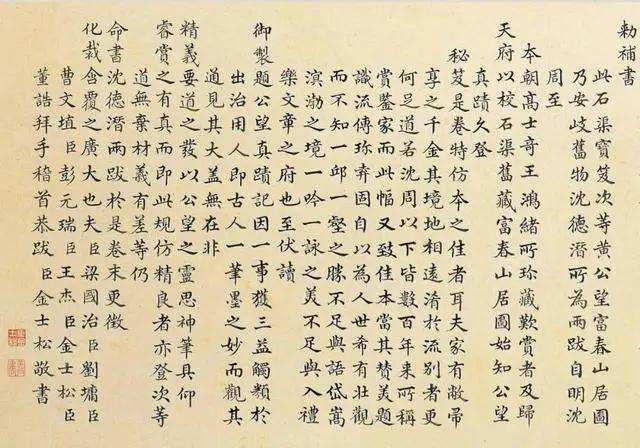 勅補書
此石渠寶笈次等黃公望富春山居圖
乃安岐舊物沈德潛所為兩跋自明沈
周至
本朝髙士奇王鴻緒所珎藏歎賞者及歸
天府以校石渠舊藏富春山居圖始知公望
真蹟久登
秘笈是卷特仿本之佳者耳夫家有敝帚
享之千金其境地相遠淆於流別者更
何足道若沈周以下皆數百年来所稱
賞鑒家而此幅又致佳本當其賛美題
識流傳珎弆固自以為人世希有壯觀
而不知一邱一壑之勝不足與語岱嵩
溟渤之境一吟一詠之美不足與入禮
樂文章之府也至伏讀
御製題公望真蹟記因一事獲三益觸類於
出治用人即古人一筆墨之妙而觀其
通見其大蓋無在非
精義要道之發以公望之靈思神筆具仰
睿賞之有真而即此規仿精良者亦登次等
道無棄材義有差等仍
命書沈德潛兩跋於是卷末更徵
化裁含覆之廣大也夫臣梁國治臣劉墉臣
曹文埴臣彭元瑞臣王杰臣金士松臣
董誥拜手稽首恭跋 臣金士松敬書